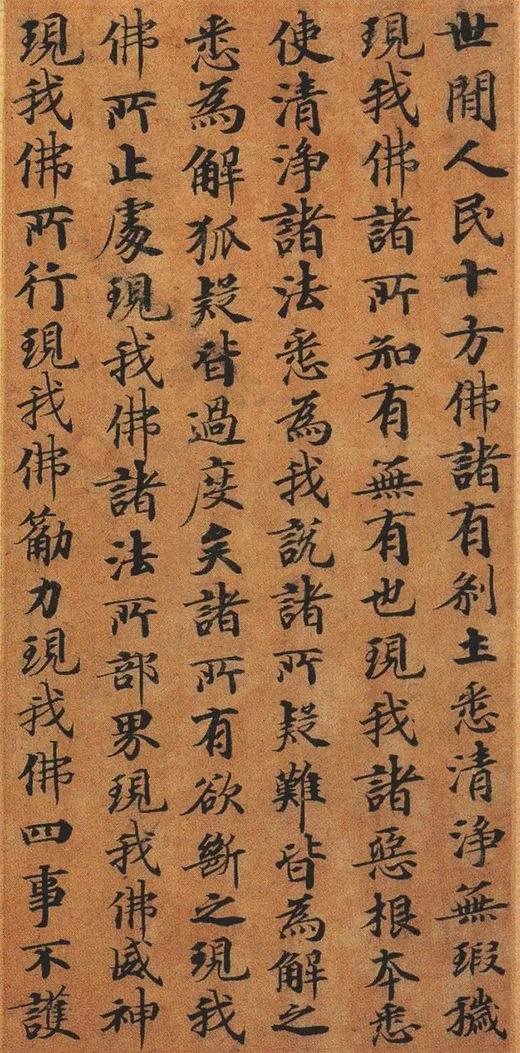 世間人民十方佛諸有刹土悉清淨無瑕穢
現我佛諸所知有無有也現我諸惡根本悉
使清淨諸法悉為我說諸所疑難皆為解之
悉為解狐疑皆過度矣諸所有欲斷之現我
佛所止處現我佛諸法所部界現我佛威神
現我佛所行現我佛勸力現我佛四事不護